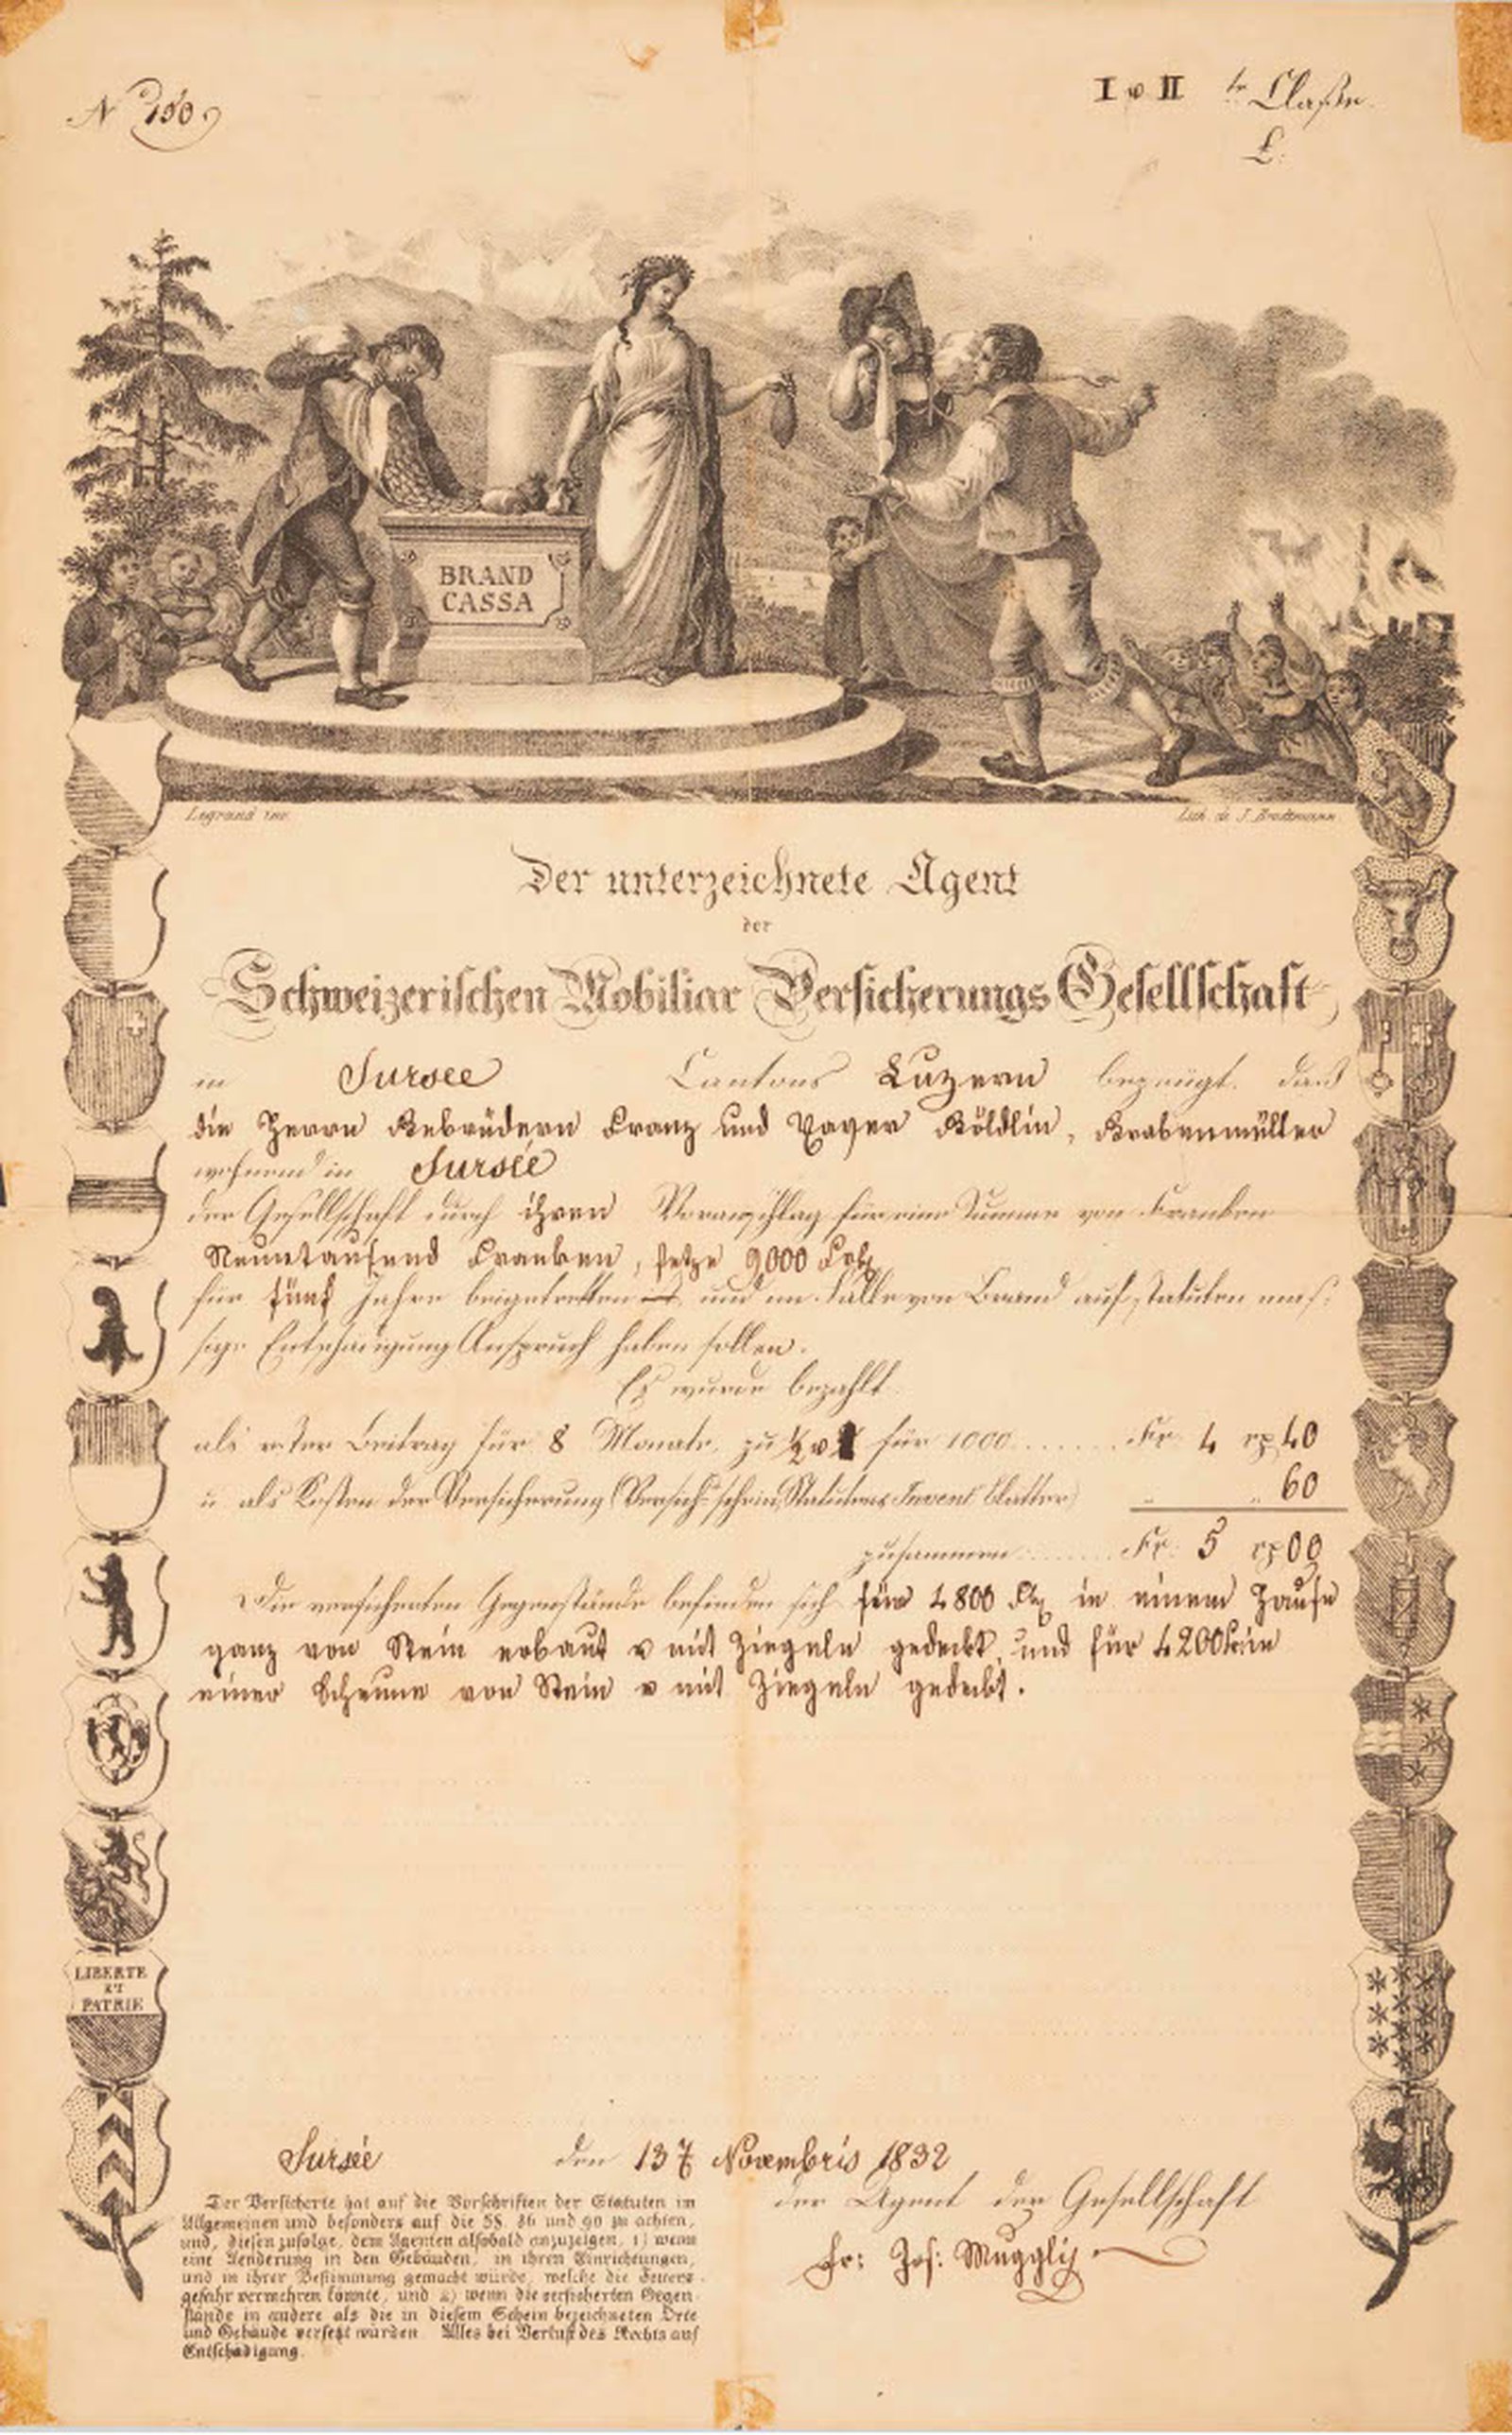 N° 150.
I v II tr Claße.
L:
BRAND
CASSA
Legrand inv.
Lith. de J. Brodtmann.
Der unterzeichnete Agent
der
Schweizerischen Mobiliar Versicherungs Gesellschaft
in Sursee Cantons Luzern bezeugt, daß
die Herrn Gebrüdern Franz und Xaver Röldlin, Grabenmüller
wohnend in Sursee
der Gesellschaft durch ihren Voranschlag für eine Summe von Franken
Neuntausend Franken, setze 9000 Frk
für fünf Jahre beigetretten und im Falle von Brand auf statuten mäs-
sige Entschädigung Anspruch haben sollen.
Es wurde bezahlt
als erster Beitrag für 8 Monate, zu ½ v für 1000 ....... Fr. 4 rp 40
u. als Kosten der Versicherung (Versich-schein, Statuten u Invent. Blätter) " " 60
zusammen ....... Fr. 5 rp 00
Die versicherten Gegenstände befinden sich für 4800 Frk in einem Hause
ganz von Stein erbaut v mit Ziegeln gedeckt, und für 4200 in
einer Scheune von Stein v mit Ziegeln gedeckt.
LIBERTE
ET
PATRIE
Sursée den 13 Novembris 1832
der Agent der Gesellschaft
Fr: Jos: Muggly
Der Versicherte hat auf die Vorschriften der Statuten im
Allgemeinen und besonders auf die §§. 86 und 90 zu achten,
und, diesen zufolge, dem Agenten alsobald anzuzeigen, 1) wenn
eine Aenderung in den Gebäuden, in ihren Einrichtungen,
und in ihrer Bestimmung gemacht würde, welche die Feuers-
gefahr vermehren könnte, und 2) wenn die versicherten Gegen-
stände in andere als die in diesem Schein bezeichneten Orte
und Gebäude versetzt würden. Alles bei Verlust des Rechts auf
Entschädigung.